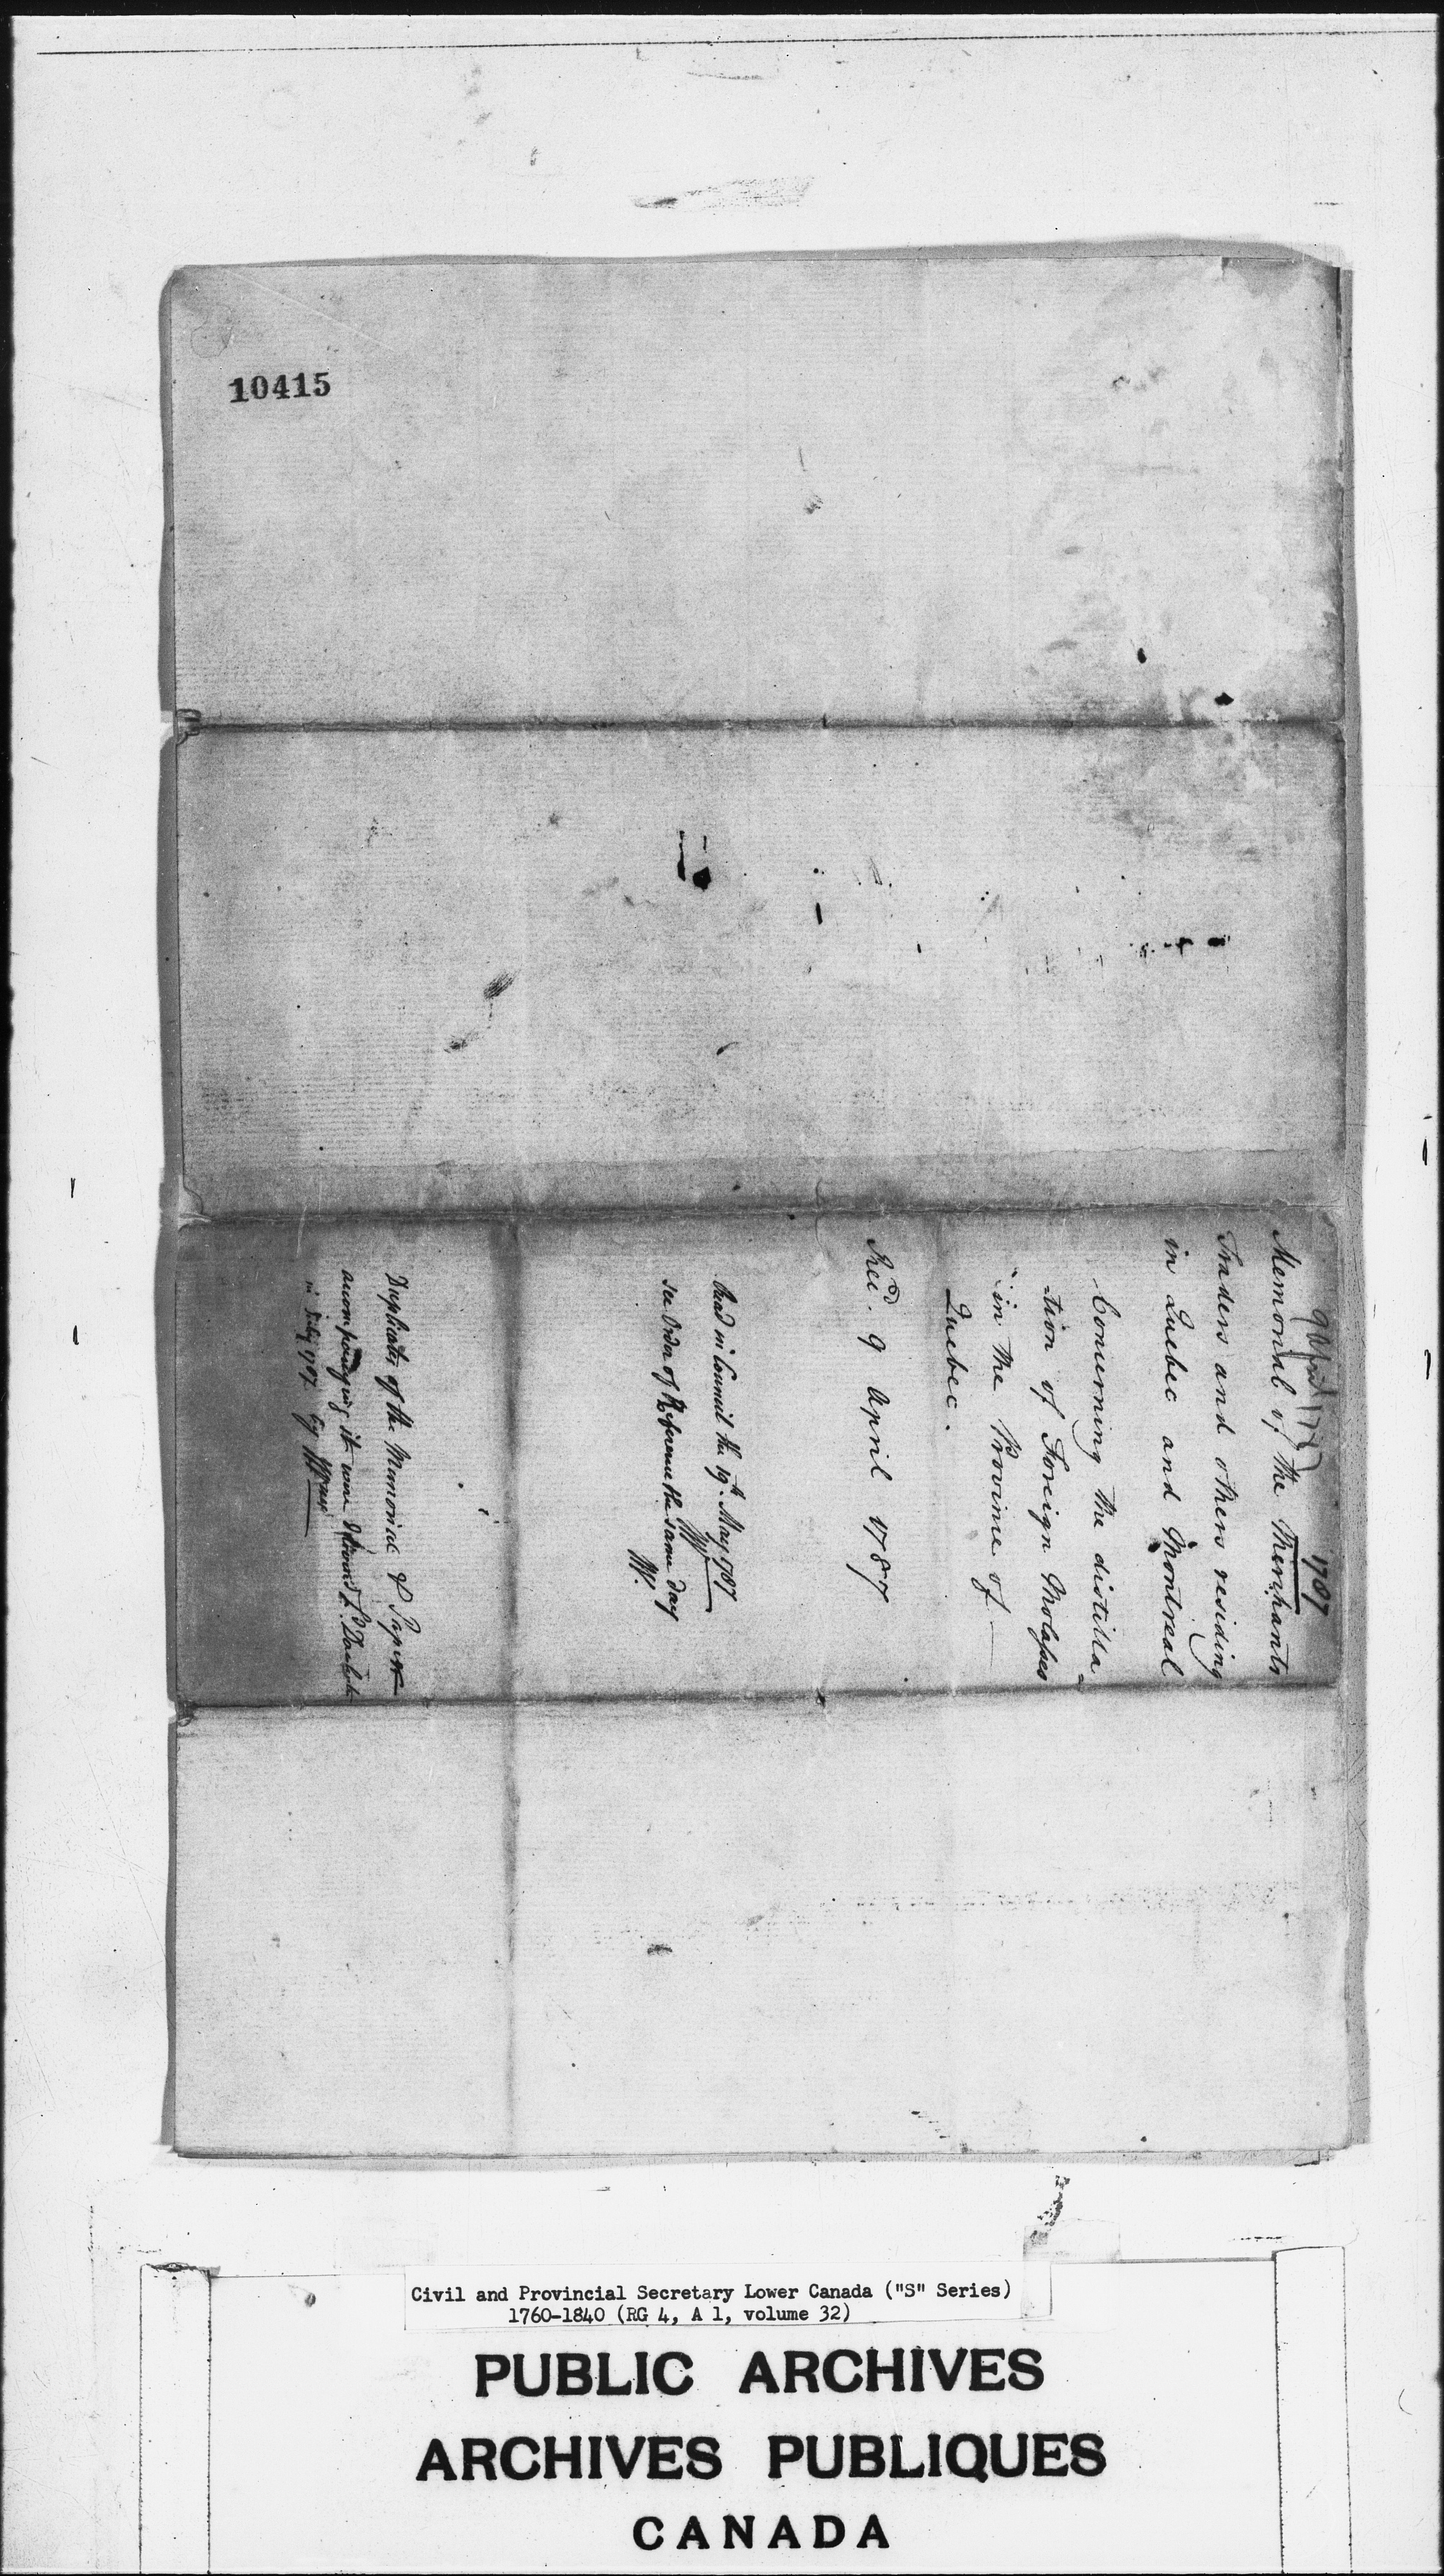 10415
9 April 1787
1787
Memorial of the Merchants
Traders and others residing
in Quebec and Montreal
Concerning the distilla
-tion of Foreign Molasses
in the Province of
Quebec.
Rec'd. 9 April 1787
Read in Council the 19th. May 1787
see Order of Reference the same day
W.
Duplicates of the Memorial & Papers
accompanying it were
in July 1787 by
Civil and Provincial Secretary Lower Canada ("S" Series)
1760-1840 (RG 4, A 1, volume 32)
PUBLIC ARCHIVES
ARCHIVES PUBLIQUES
CANADA